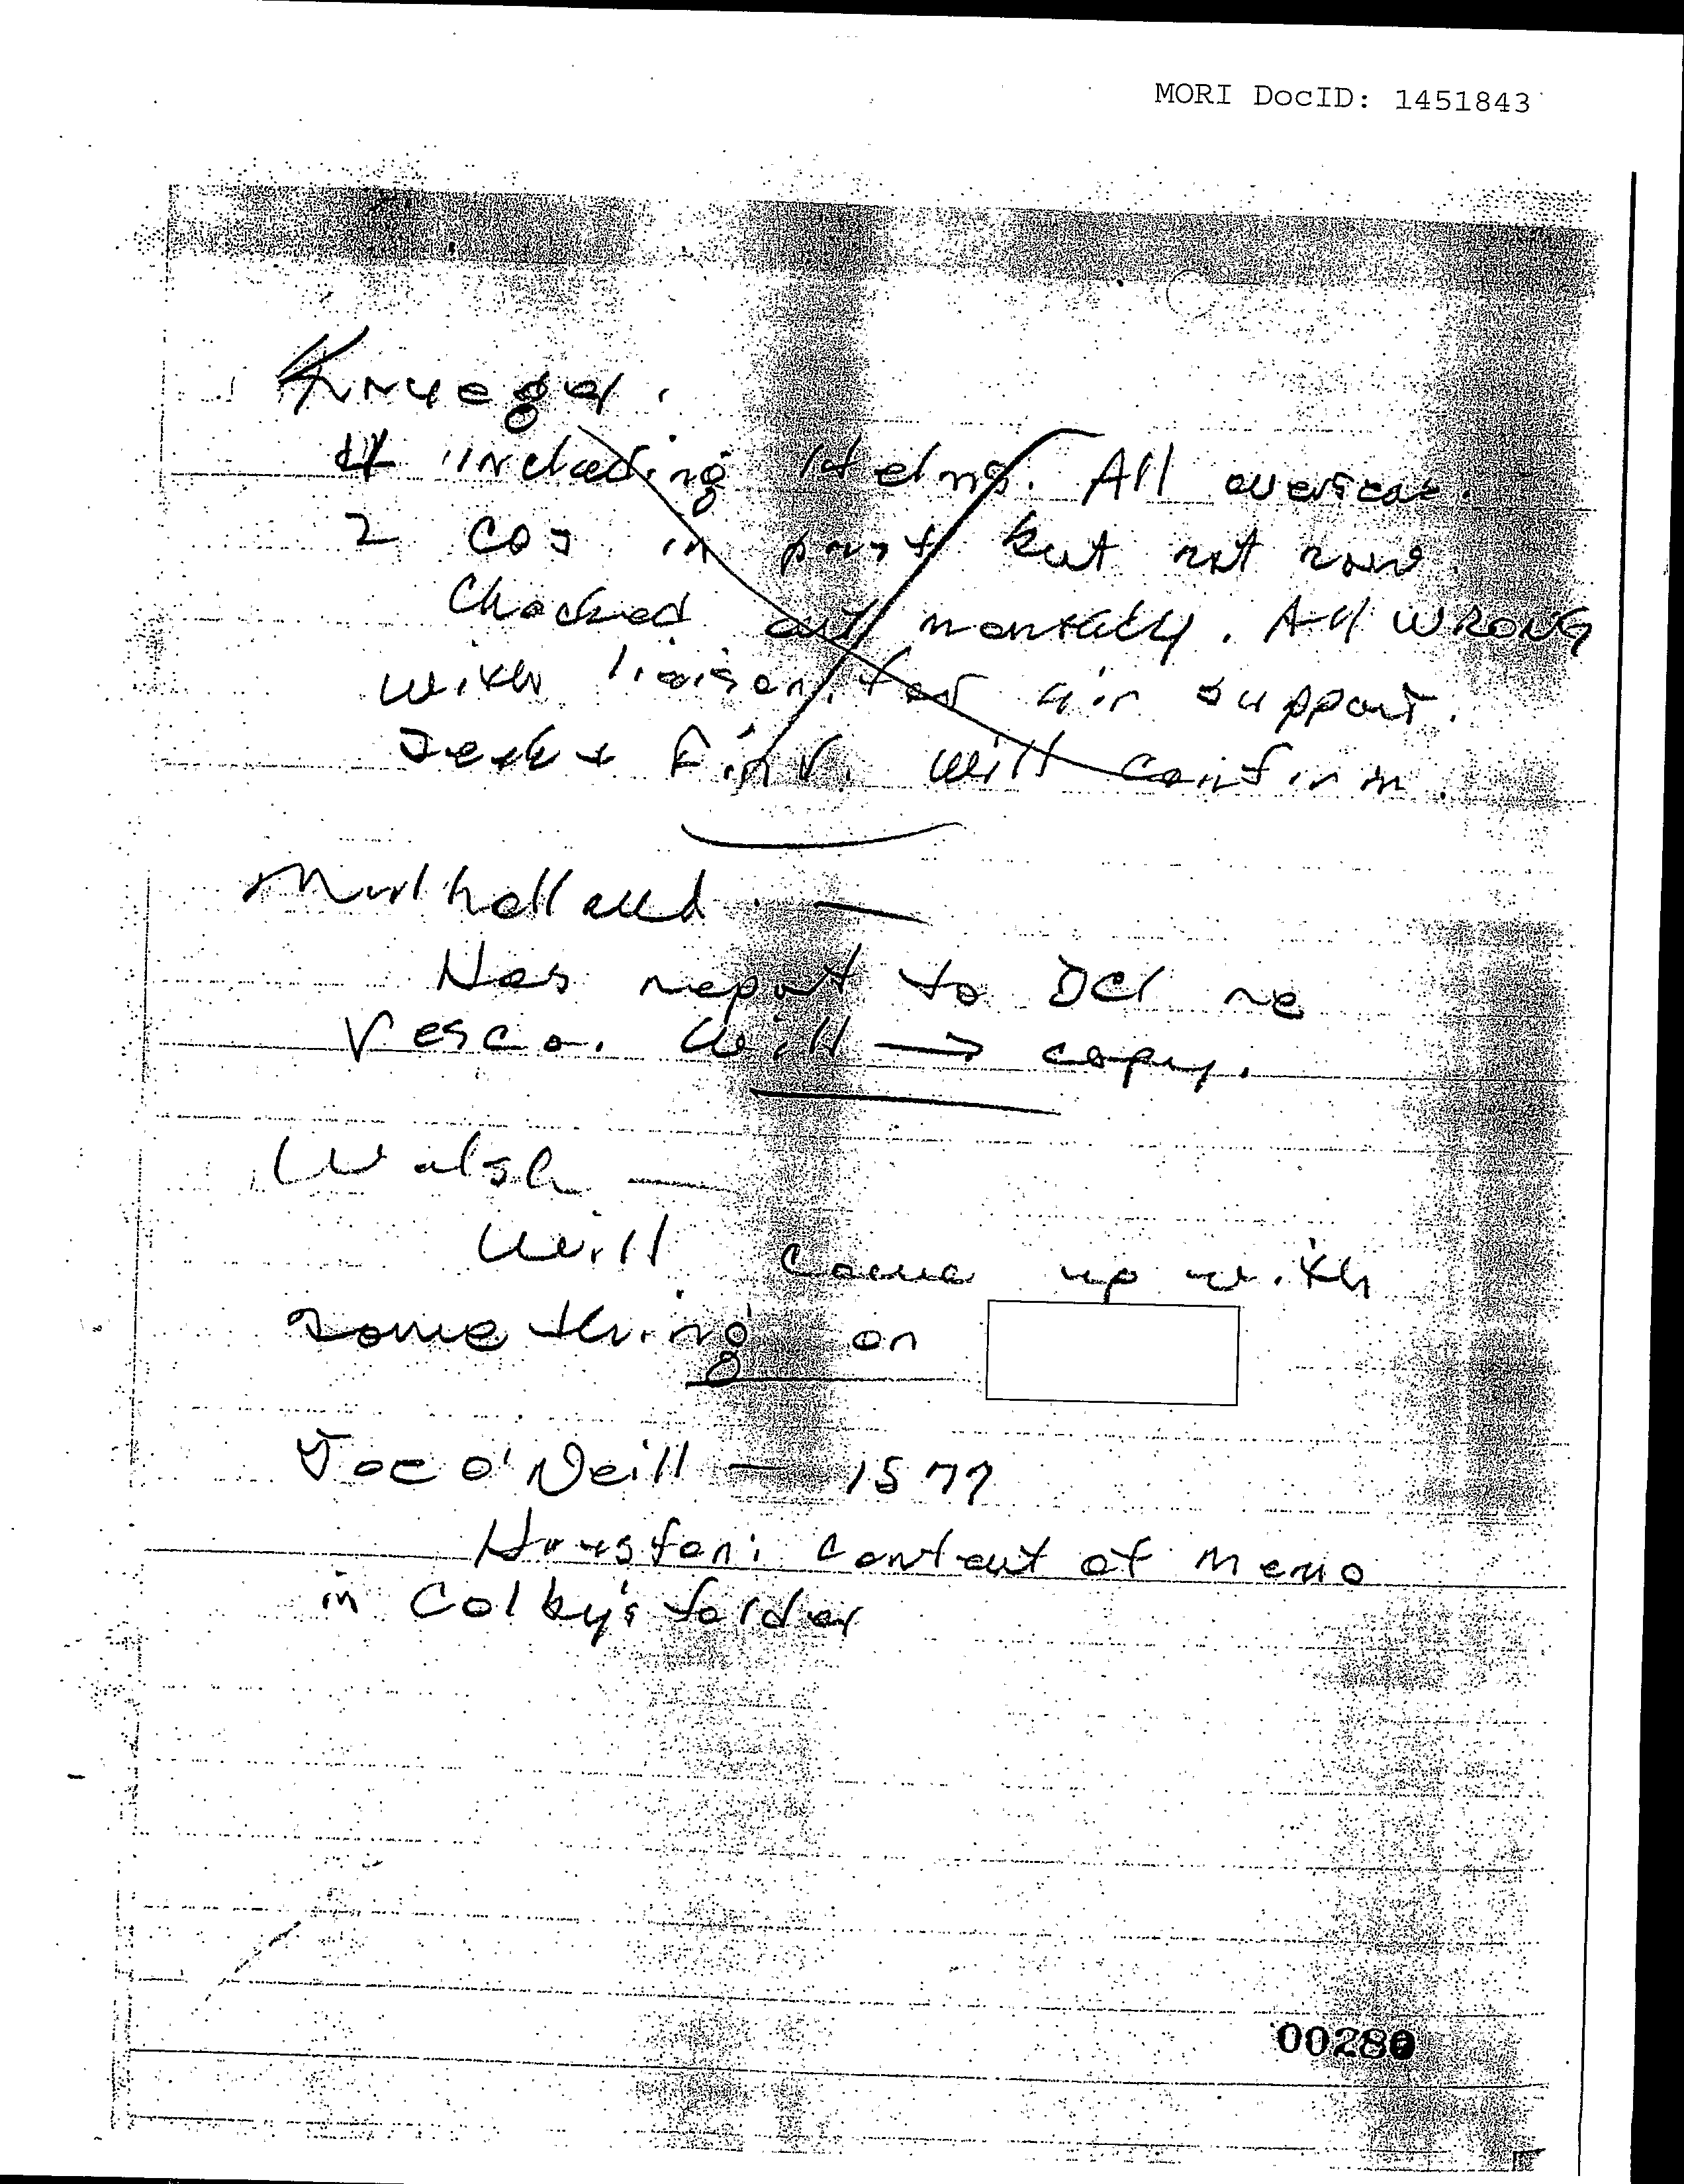 MORI DocID: 1451843
Krueger.
4 including Helms. All overseas.
2 cos in past but not now.
Checked out mentally. All WRONG
with liaison for air support.
Seek + Find. Will confirm.
Mulholland. —
Has report to DCI re
Vesco. Will → copy.
Walsh —
Will come up with
something on
Joe O'Neill — 1577
Houston: content of memo
in Colby's folder
00280